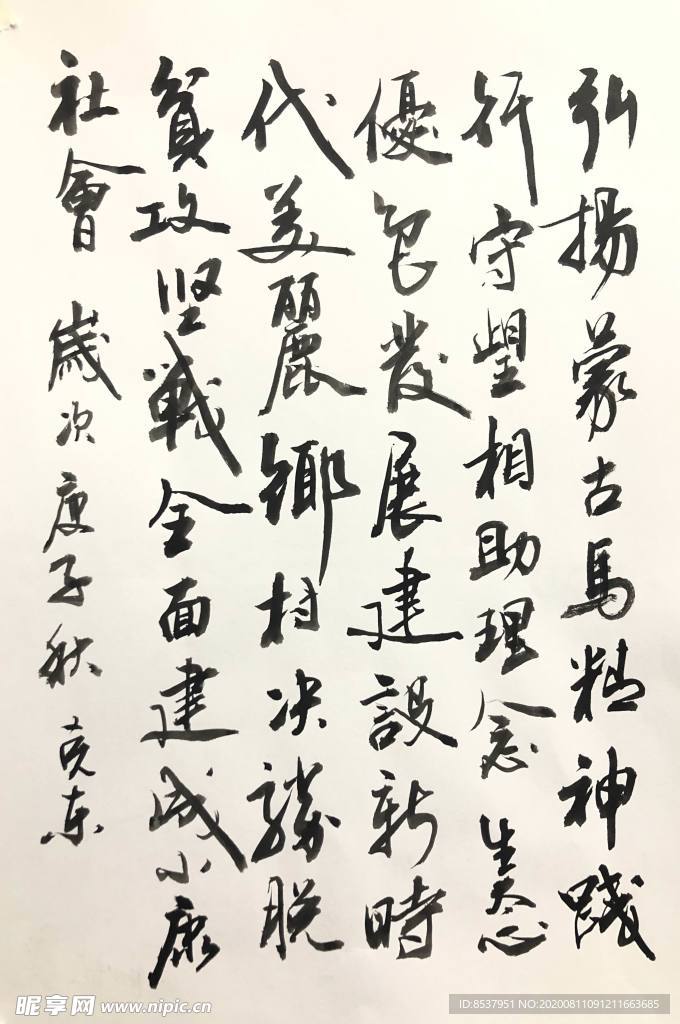 弘揚蒙古馬精神踐
行守望相助理念生态
優包發展建設新時
代美麗鄉村决勝脱
貧攻坚戰全面建成小康
社會 歲次庚子秋 克東
昵享网 www.nipic.cn
ID:8537951 NO:20200811091211663685